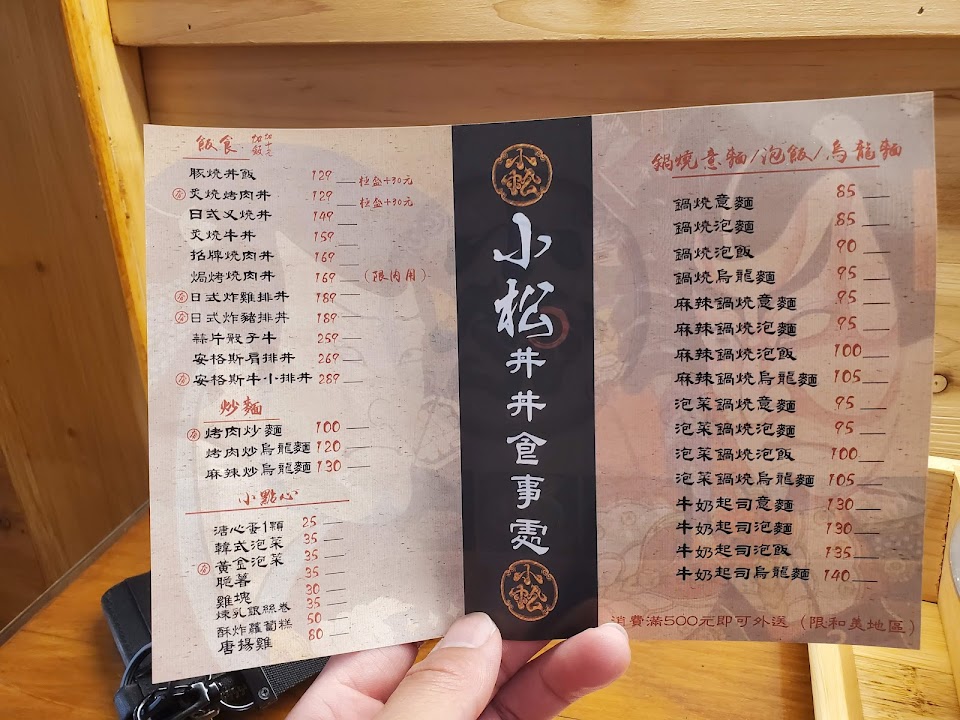 飯食 加飯加十元
豚燒丼飯 129 極盛+30元
炙燒烤肉丼 129 極盛+30元
日式叉燒丼 149
炙燒牛丼 159
招牌燒肉丼 169
焗烤燒肉丼 169 (限內用)
日式炸雞排丼 189
日式炸豬排丼 189
蒜片骰子牛 259
安格斯肩排丼 269
安格斯牛小排丼 289
炒麵
烤肉炒麵 100
烤肉炒烏龍麵 120
麻辣炒烏龍麵 130
小點心
溏心蛋1顆 25
韓式泡菜 35
黃金泡菜 35
脆薯 35
雞塊 30
煉乳銀絲卷 35
酥炸蘿蔔糕 50
唐揚雞 80
小松
小松丼丼食事處
小松
鍋燒意麵/泡飯/烏龍麵
鍋燒意麵 85
鍋燒泡麵 85
鍋燒泡飯 90
鍋燒烏龍麵 95
麻辣鍋燒意麵 95
麻辣鍋燒泡麵 95
麻辣鍋燒泡飯 100
麻辣鍋燒烏龍麵 105
泡菜鍋燒意麵 95
泡菜鍋燒泡麵 95
泡菜鍋燒泡飯 100
泡菜鍋燒烏龍麵 105
牛奶起司意麵 130
牛奶起司泡麵 130
牛奶起司泡飯 135
牛奶起司烏龍麵 140
消費滿500元即可外送(限和美地區)